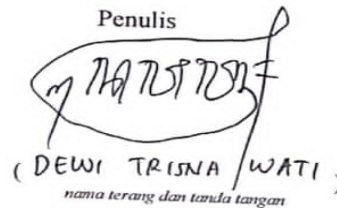 Penulis
( DEWI TRISNA WATI )
nama terang dan tanda tangan